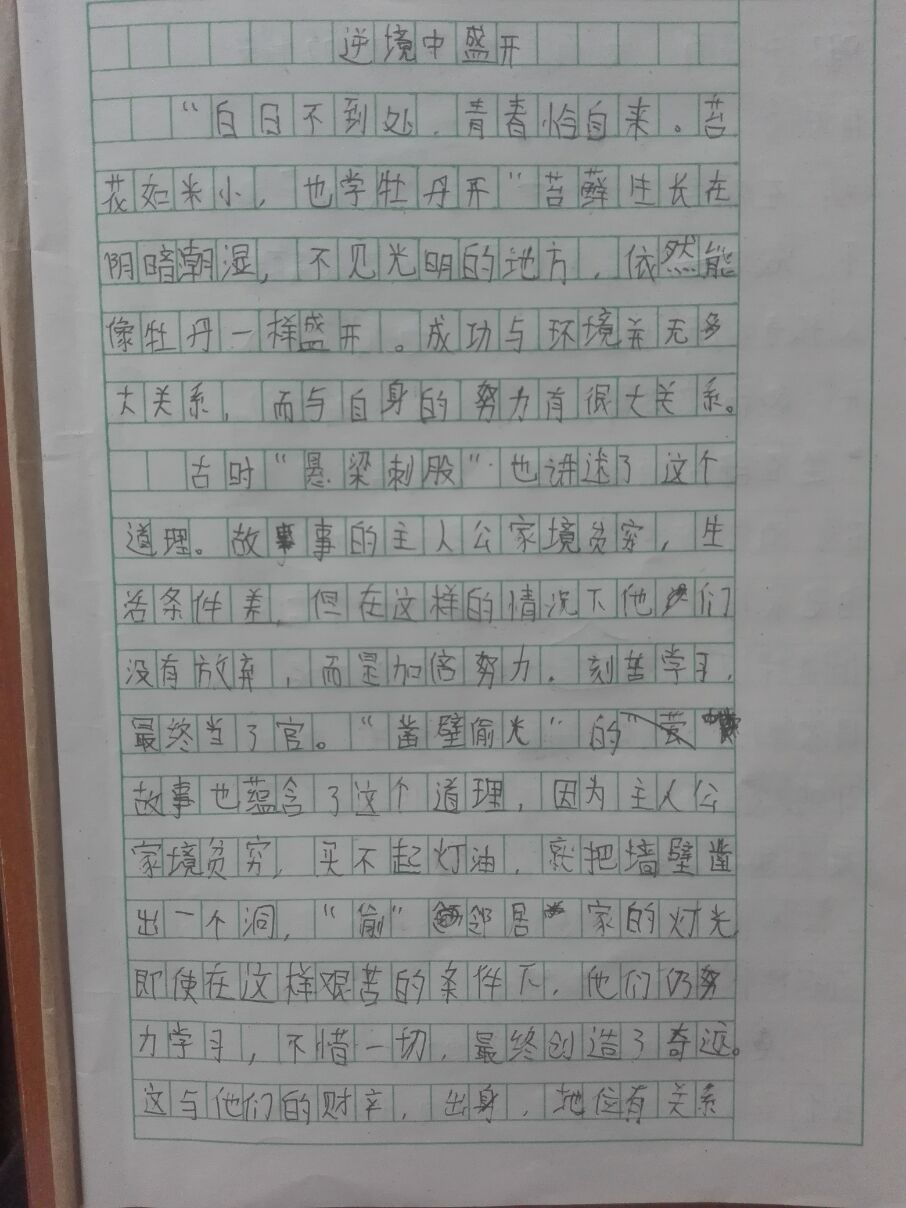 逆境中盛开
“白日不到处，青春恰自来。苔
花如米小，也学牡丹开”苔藓生长在
阴暗潮湿，不见光明的地方，依然能
像牡丹一样盛开。成功与环境并无多
大关系，而与自身的努力有很大关系。
古时“悬梁刺股”也讲述了这个
道理。故事的主人公家境贫穷，生
活条件差，但在这样的情况下他们
没有放弃，而是加倍努力．刻苦学习，
最终当了官。“凿壁偷光”的
故事也蕴含了这个道理，因为主人公
家境贫穷，买不起灯油，就把墙壁凿
出一个洞，“偷”邻居家的灯光
即使在这样艰苦的条件下，他们仍努
力学习，不惜一切，最终创造了奇迹。
这与他们的财产，出身，地位有关系